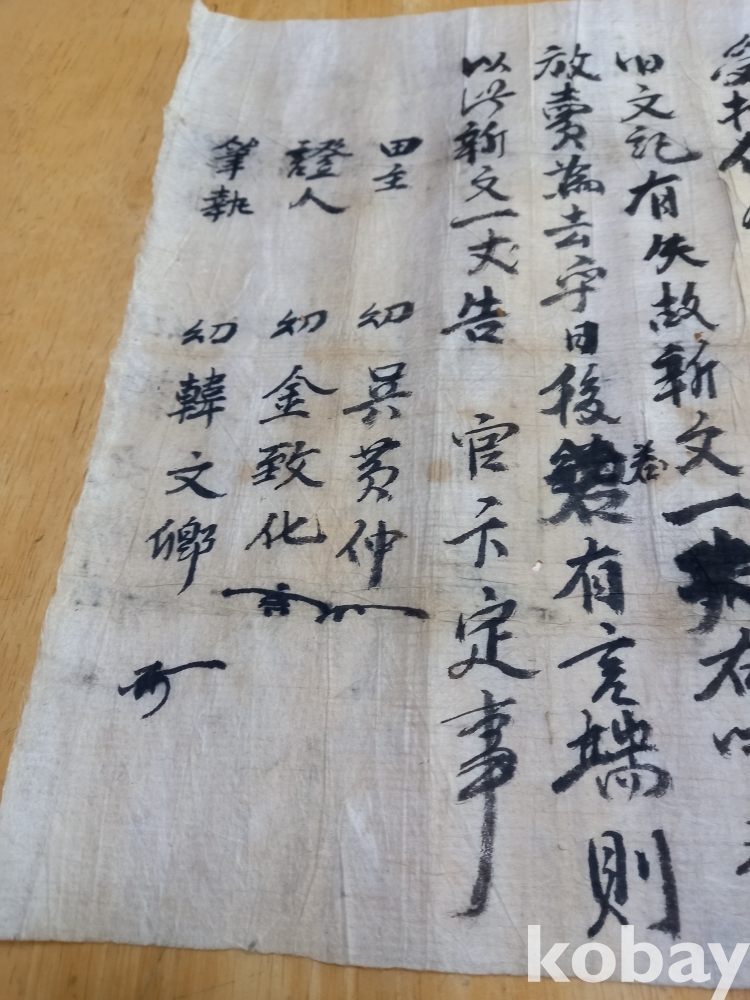 受
旧文記有失故新文一 右
放賣為去乎日後 若有言端則
以此新文一丈告 官卞定事
田主 幼 吳 仲
證人 幼 金致化
筆執 幼 韓文鄉
kobay